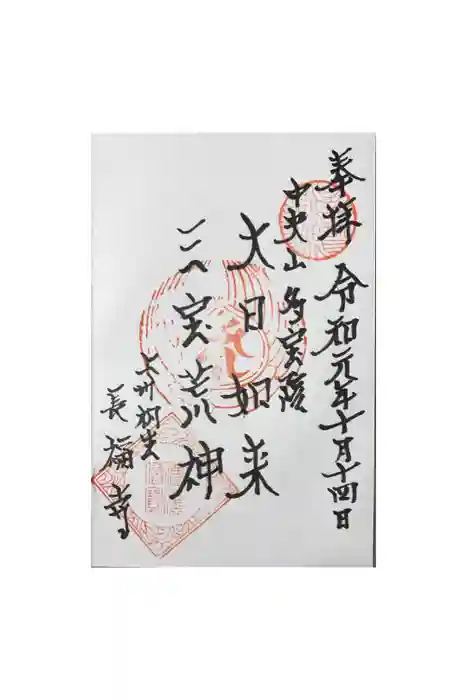 奉拝 令和元年十月十四日
中央山多宝院
大日如来
三宝荒神
上州桐生
長福寺